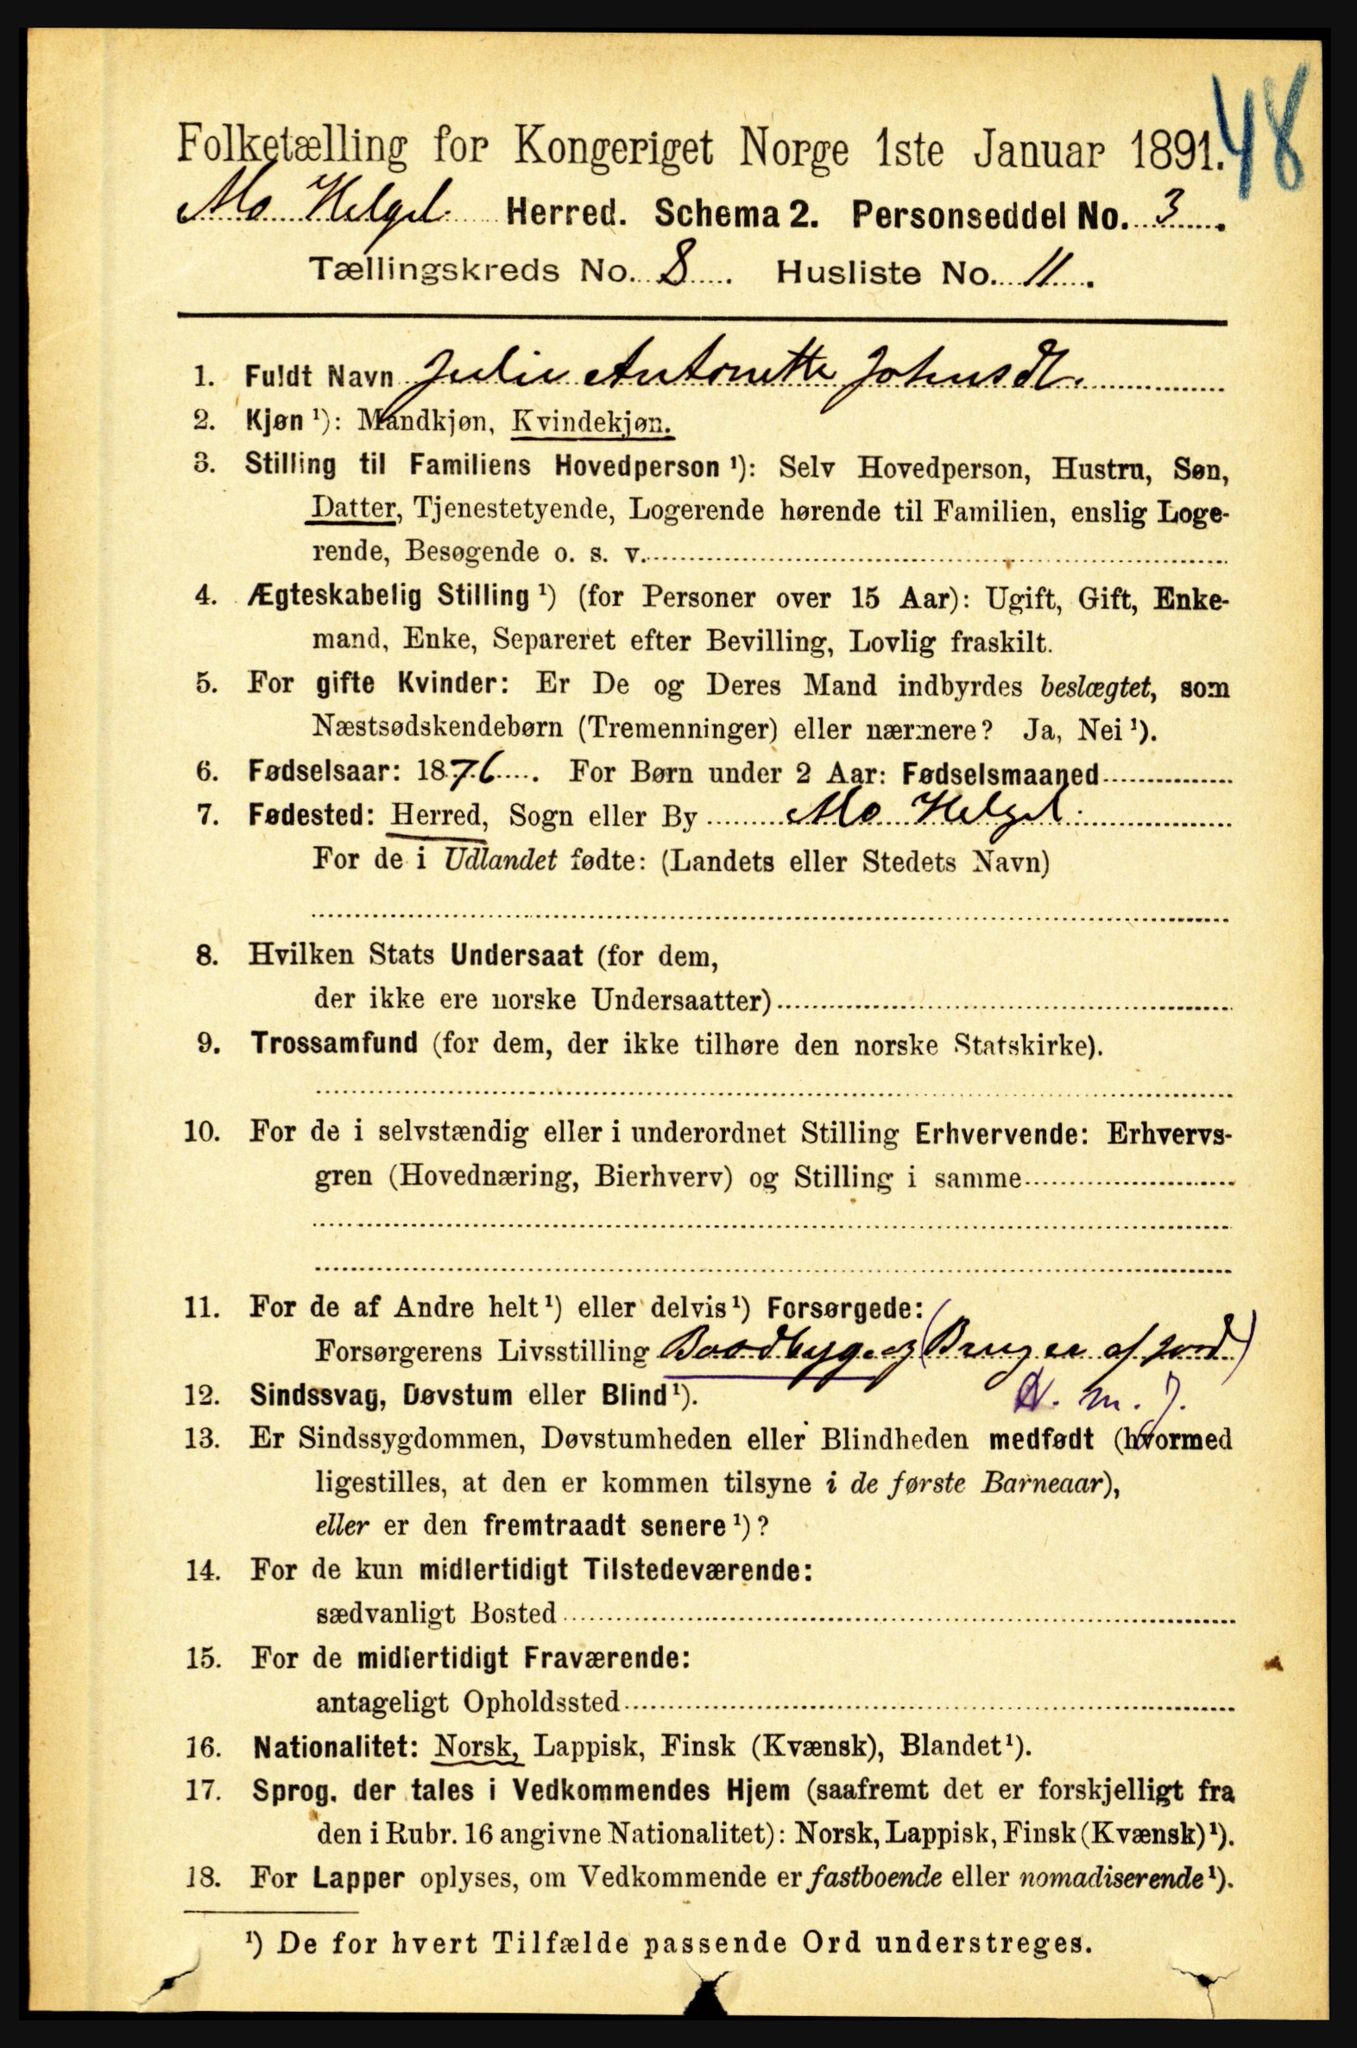 48
Folketælling for Kongeriget Norge 1ste Januar 1891.
Mo Helgel. Herred. Schema 2. Personseddel No. 3.
Tællingskreds No. 8. Husliste No. 11.
1. Fuldt Navn Julie Antonette Johnsdt.
2. Kjøn ¹): Mandkjøn, Kvindekjøn.
3. Stilling til Familiens Hovedperson ¹): Selv Hovedperson, Hustru, Søn,
Datter, Tjenestetyende, Logerende hørende til Familien, enslig Loge-
rende, Besøgende o. s. v.
4. Ægteskabelig Stilling ¹) (for Personer over 15 Aar): Ugift, Gift, Enke-
mand, Enke, Separeret efter Bevilling, Lovlig fraskilt.
5. For gifte Kvinder: Er De og Deres Mand indbyrdes beslægtet, som
Næstsødskendebørn (Tremenninger) eller nærmere? Ja, Nei ¹).
6. Fødselsaar: 1876. For Børn under 2 Aar: Fødselsmaaned
7. Fødested: Herred, Sogn eller By Mo Helgel.
For de i Udlandet fødte: (Landets eller Stedets Navn)
8. Hvilken Stats Undersaat (for dem,
der ikke ere norske Undersaatter)
9. Trossamfund (for dem, der ikke tilhøre den norske Statskirke).
10. For de i selvstændig eller i underordnet Stilling Erhvervende: Erhvervs-
gren (Hovednæring, Bierhverv) og Stilling i samme
11. For de af Andre helt ¹) eller delvis ¹) Forsørgede:
Forsørgerens Livsstilling Baadbyg. og (Bruger af Jord)
12. Sindssvag, Døvstum eller Blind ¹). m. J.
13. Er Sindssygdommen, Døvstumheden eller Blindheden medfødt (hvormed
ligestilles, at den er kommen tilsyne i de første Barneaar),
eller er den fremtraadt senere ¹)?
14. For de kun midlertidigt Tilstedeværende:
sædvanligt Bosted
15. For de midlertidigt Fraværende:
antageligt Opholdssted
16. Nationalitet: Norsk, Lappisk, Finsk (Kvænsk), Blandet ¹).
17. Sprog, der tales i Vedkommendes Hjem (saafremt det er forskjelligt fra
den i Rubr. 16 angivne Nationalitet): Norsk, Lappisk, Finsk (Kvænsk) ¹).
18. For Lapper oplyses, om Vedkommende er fastboende eller nomadiserende ¹).
¹) De for hvert Tilfælde passende Ord understreges.